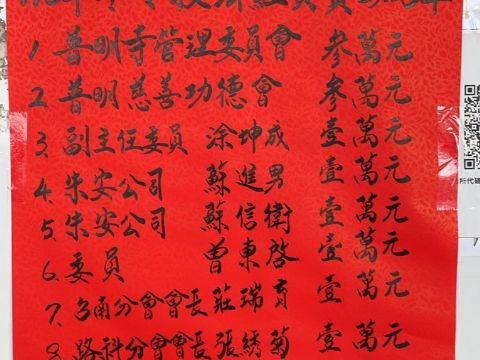 1. 普明寺管理委員會 參萬元
2. 普明慈善功德會 參萬元
3. 副主任委員 涂坤成 壹萬元
4. 朱安公司 蘇進男 壹萬元
5. 朱安公司 蘇信衛 壹萬元
6. 委員 曾東啓 壹萬元
7. 分會會長 莊瑞育 壹萬元
8. 路科分會會長 張綉菊 壹萬元